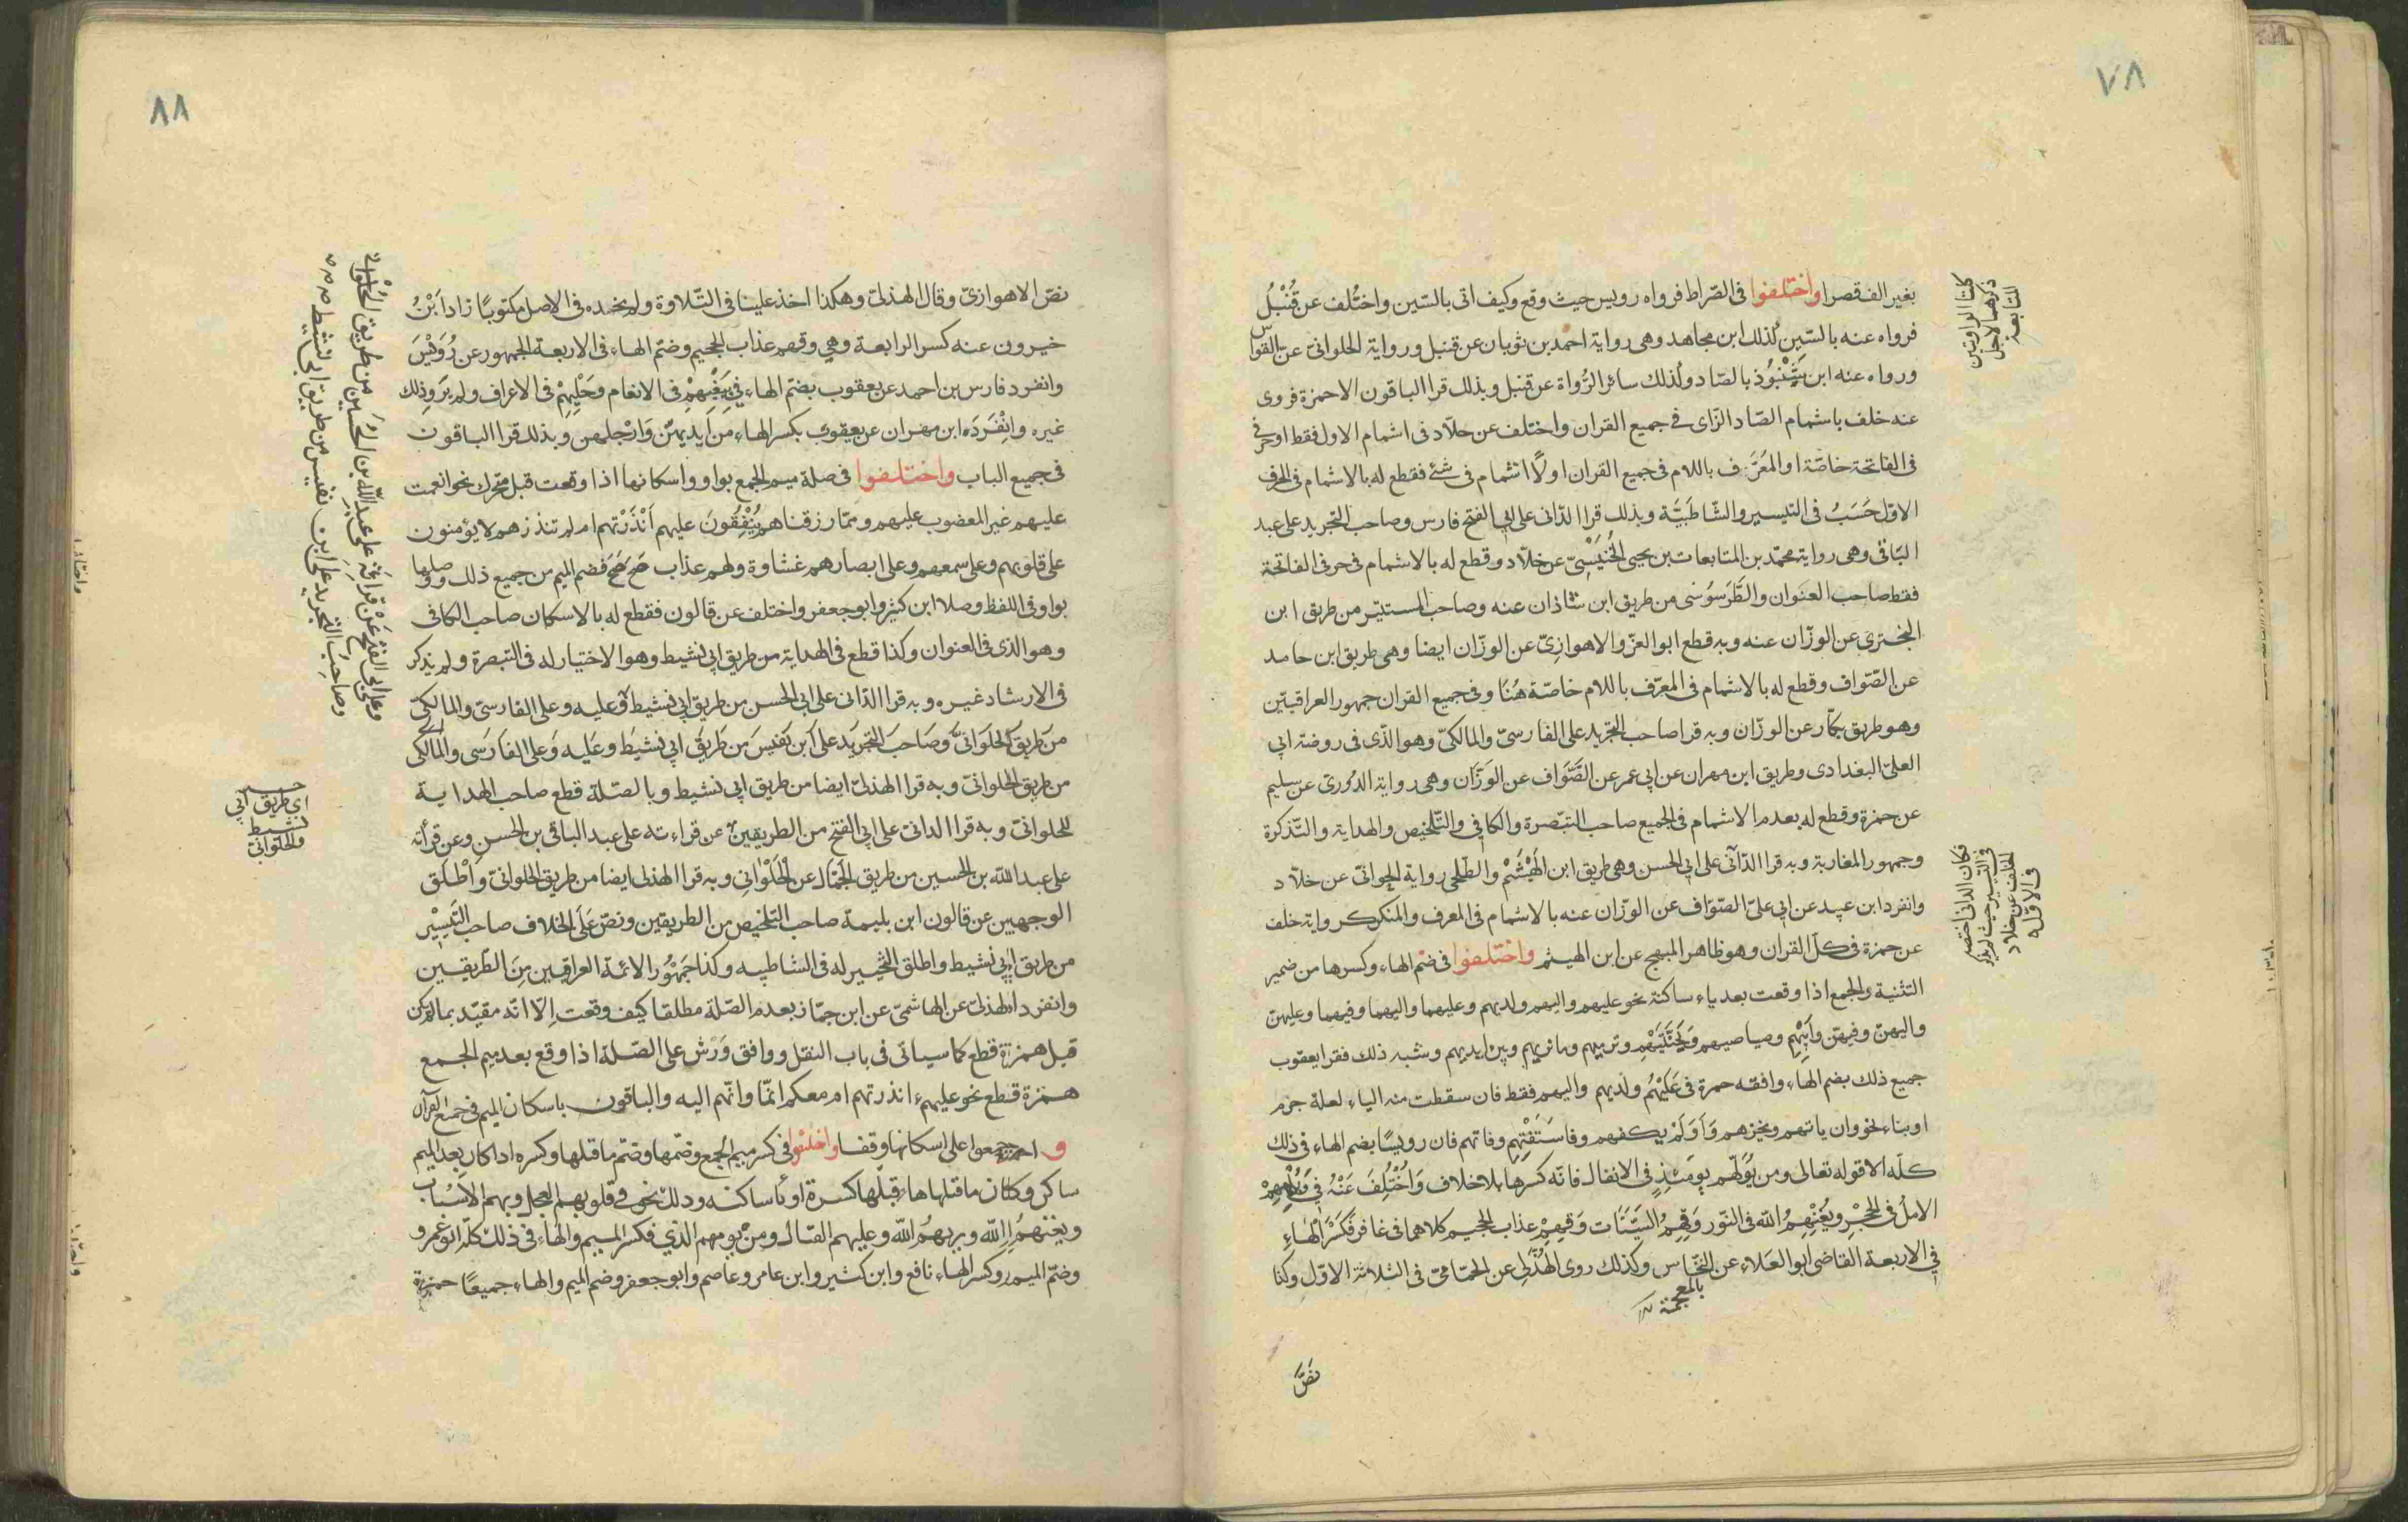 ٧٨
بغير الف قصرا واختلفوا فى الصّراط فرواه رويس حيث وقع وكيف اتى بالسّين واختُلف عن قُنْبُلُ
فرواه عنه بالسّين كذلك ابن مجاهد وهى رواية احمد بن ثوبان عن قنبل ورواية الحلوانى عن القواس
ورواه عنه ابن شَنْبُوذ بالصّاد وكذلك سائر الرُّواة عن قنبل وبذلك قرا الباقون الا حمزة فروى
عنه خلف باشمام الصّاد الزّاى فى جميع القران واختلف عن خلّاد فى اشمام الاول فقط او حرفى
فى الفاتحة خاصّة او المُعَرَّف باللام فى جميع القران اولًا اشمام فى شئ فقطع له بالاشمام فى الحرف
الاوّل حَسَبُ فى التيسير والشّاطَبيَّة وبذلك قرا الدّانى على ابي الفتح فارس وصاحب التجريد على عبد
الباقى وهى رواية محمّد بن المتابعات بن يحيى الخُنَيْسِىّ عن خلّاد وقطع له بالاشمام فى حرفى الفاتحة
فقط صاحب العنوان والطَّرَسُوسَى من طريق ابن شاذان عنه وصاحب المستنير من طريق ابن
البخترى عن الوزّان عنه وبه قطع ابو العزّ والاهوازِىّ عن الوزّان ايضا وهى طريق ابن حامد
عن الصّوّاف وقطع له بالاشمام فى المعرّف باللام خاصّة هُنَا وفى جميع القران جمهور العراقيّين
وهو طريق بكّار عن الوزّان وبه قرا صاحب التجريد على الفارسىّ والمالكىّ وهو الذّى فى روضة ابى
العلىّ البغدادى وطريق ابن مهران عن ابى عمر عن الصَّوَّاف عن الوَزَّان وهى رواية الدُورىّ عن سليم
عن حمزة وقطع له بعدم الاشمام فى الجميع صاحب التبّصرة والكافى والتّلخيص والهداية والتّذكرة
وجمهور المغاربة وبه قرا الدّآنى على ابي الحسن وهى طريق ابن الهَيْثَمْ والطّلحى رواية الحلوانىّ عن خلّاد
وانفرد ابن عبيد عن ابى علىّ الصّوّاف عن الوزّان عنه بالاشمام فى المعرف والمنكر كرواية خلف
عن حمزة فى كلّ القران وهو ظاهر المبهج عن ابن الهيثم واختلفوا فى ضم الهاء وكسرها من ضمير
التثنية والجمع اذا وقعت بعد ياء ساكنة نحو عليهم واليهم ولديهم وعليهما واليهما وفيهما وعليهنّ
واليهنّ وفيهنّ وأبيْهِم وصياصيهم وَبِجَنَّتَيْهِم وتريهم وما نريهم وبين ايديهم وشبه ذلك فقرا يعقوب
جميع ذلك بضم الهاء وافقه حمزة فى عَلَيْهُم ولديهم واليهم فقط فان سقطت منه الياء لعلة جزم
او بناء نحو وان ياتهم ويخزهم وَاَوَلَمْ يكفهم وفاسَتَفْتِهِم وفاتهم فان رويسًا بضم الهاء فى ذلك
كلّه الا قوله تعالى ومن يُوَلّهِم يومَئِذٍ فى الانفال فانّه كسرها بلا خلاف وَاُخْتُلِفَ عَنْهُ فِى وَيُلْهِهِمْ
الامل فى الحِجْرِ ويُغْنِهِمُ الله فى النّور وَقِهِمُ السَّيِّئَات وَقِهِمْ عذاب الجحيم كلاهما فى غافر فَكَسَرَ الْهَاءِ
فى الاربعة القاضى ابو العَلاء عن النخّاس وكذلك روى الهُذَلى عن الحمّامىّ فى الثلاثة الاوّل وكذا
بالمعجمة
نصَّ
كلتا الروايتين
ذكرهما لاجل
المتابعة
فكان الدانى اختصر
فى التيسير حيث لم يذكر
الخلف عن خلاد
فى الاوّل
٨٨
نصّ الاهوازىّ وقال الهذلىّ وهكذا اخذ علينا فى التّلاوة ولم نجده فى الاصل مكتوبًا زاد ابْنُ
خيرون عنه كسر الرابعة وهى وقهم عذاب الجحيم وضمّ الهاء فى الاربعة الجمهور عن رُوَيْسَ
وانفرد فارس بن احمد عن يعقوب بضمّ الهاء فى بِبَغْيِهِمْ فى الانعام وحُلِيِّهِمْ فى الاعراف ولم يَروِ ذلك
غيره وانْفَرَدَه ابن مهران عن يعقوب بكسر الهاء من أيديهنّ وَارْجلهنّ وبذلك قرا الباقون
فى جميع الباب واختلفوا فى صلة ميم الجمع بواو واسكانها اذا وقعت قبل محرّك نحو انعمت
عليهم غير المغضوب عليهم وممّا رزقناهم يُنْفِقُونَ عليهم أَنْذَرْتهم ام لم تنذرهم لا يؤمنون
على قلوبهم وعلى سمعهم وعلى ابصارهم غشاوة ولهم عذاب فضم الميم من جميع ذلك ووصلها
بواو فى اللفظ وصلا ابن كثير وابو جعفر واختلف عن قالون فقطع له بالاسكان صاحب الكافى
وهو الذى فى العنوان وكذا قطع فى الهداية من طريق ابى نشيط وهو الاختيار له فى التبصرة ولم يذكر
فى الارشاد غيره وبه قرا الدّانى على ابى الحسن من طريق ابى نشيط وعليه وعلى الفارسىّ والمالكىّ
من طريق الحلوانىّ وصاحب التجريد على ابن نفيس من طريق ابى نشيط وعليه وعلى الفارسى والمالكى
من طريق الحلوانىّ وبه قرا الهذلىّ ايضا من طريق ابى نشيط وبالصّلة قطع صاحب الهداية
للحلوانىّ وبه قرا الدانىّ على ابى الفتح من الطريقين عن قراءته على عبد الباقى بن الحسن وعن قراته
على عبد الله بن الحسين من طريق الجَمّال عن الحَلْوَانِى وبه قرا الهذلى ايضا من طريق الحلوانىّ وَاَطْلَق
الوجهين عن قالون ابن بليمة صاحب التلخيص من الطريقين ونصّ عَلَى الخلاف صاحب التَّيسِيْر
من طريق ابى نشيط واطلق التخيير له فى الشاطبيه وكذا جَمْهُور الائمّة العراقيين مِنَ الطّريقين
وانفرد الهذلىّ عن الهاشمىّ عن ابن جمّاز بعدم الصّلة مطلقا كيف وقعت اِلّا انّه مقيّد بما لم يكن
قبل همزة قطع كما سياتى فى باب النقل ووافق وَرْش على الصّلة اذا وقع بعد ميم الجمع
همزة قطع نحو عليهم ءانذرتهم ام معكم انّما وانّهم اليه والباقون باسكان الميم فى جميع القرآن
و اجمعوا على اسكانها وقفا واختلفوا فى كسر ميم الجمع وضمّها وضمّ ما قبلها وكسره اذا كان بعد الميم
ساكن وكان ما قبلها هاء قبلها كسرة او ياء ساكنه وذلك نحو فى قلوبهم العجل وبهم الاَسْبَاب
ويغنهمُ الله ويريهمُ الله وعليهم القتال ومن يومهم الذي فكسر الميم والهاء فى ذلك كلّه ابو عَمرو
وضمّ الميم وكسر الهاء نافع وابن كثير وابن عامر وعاصم وابو جعفر وضم الميم والهاء جميعًا حمزة
وعلى ابى الفَتْح عَنْ قراَتِه على عبد اللّه بن الحُسَين من طريق الحُلْوَانى
وصاحب التجريد على ابن نفيس من طريق ابى نشيط
اى طريق ابى
نشيط
والحلوانىّ